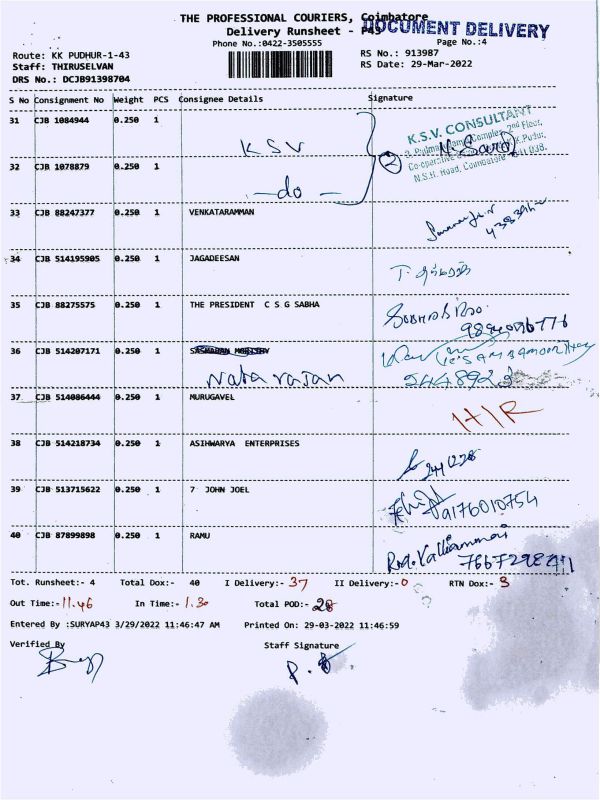 THE PROFESSIONAL COURIERS, Coimbatore
DOCUMENT DELIVERY
Delivery Runsheet - P43
Phone No.:0422-3505555 Page No.:4
Route: KK PUDHUR-1-43 RS No.: 913987
Staff: THIRUSELVAN RS Date: 29-Mar-2022
DRS No.: DCJB91398704
S No Consignment No Weight PCS Consignee Details Signature
31 CJB 1084944 0.250 1 KSV
K.S.V. CONSULTANT
32 CJB 1078879 0.250 1 -do-
33 CJB 88247377 0.250 1 VENKATARAMMAN
34 CJB 514195905 0.250 1 JAGADEESAN
35 CJB 88275575 0.250 1 THE PRESIDENT C S G SABHA
36 CJB 514207171 0.250 1
Natarajan
37 CJB 514086444 0.250 1 MURUGAVEL
38 CJB 514218734 0.250 1 ASIHWARYA ENTERPRISES
39 CJB 513715622 0.250 1 7 JOHN JOEL 9176010754
40 CJB 87899898 0.250 1 RAMU
Tot. Runsheet:- 4 Total Dox:- 40 I Delivery:- 37 II Delivery:- 0 RTN Dox:- 3
Out Time:- 11.46 In Time:- 1.30 Total POD:- 28
Entered By :SURYAP43 3/29/2022 11:46:47 AM Printed On: 29-03-2022 11:46:59
Verified By Staff Signature